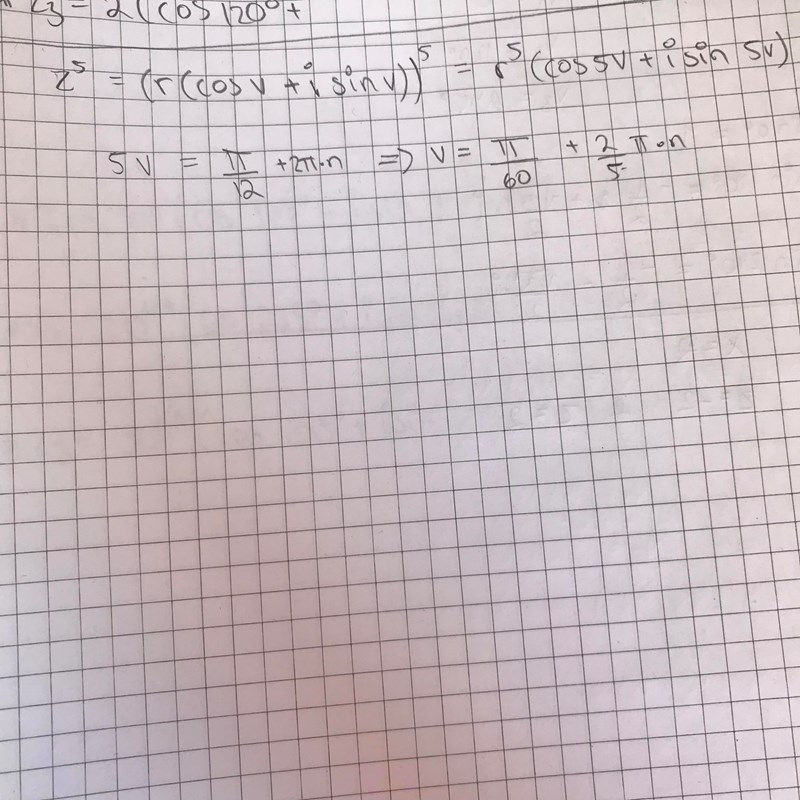 z₃ = 2(cos 120° +
z⁵ = (r(cos v + i sin v))⁵ = r⁵(cos 5v + i sin 5v)
5v = π/12 + 2π·n ⇒ v = π/60 + 2/5 π·n